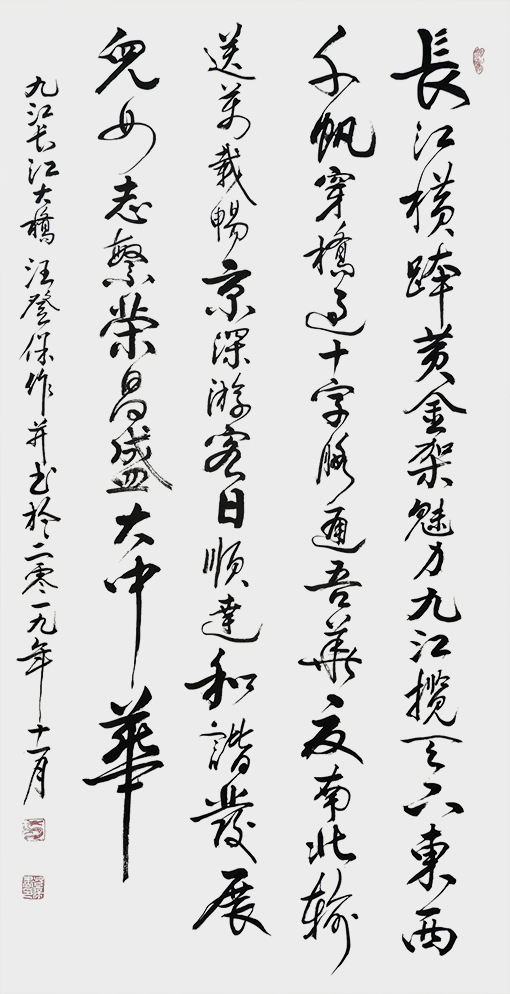 長江橫跨黄金架魅力九江攬天下東西
千帆穿橋過十字脉通吾華夏南北輸
送萬載暢京深游客日順達和諧發展
兒女志繁榮昌盛大中華
九江长江大橋 汪登保作并书於二零一九年十一月